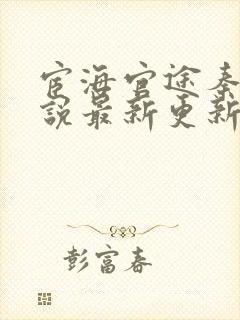 宦海官途秦
说最新更新
彭富春